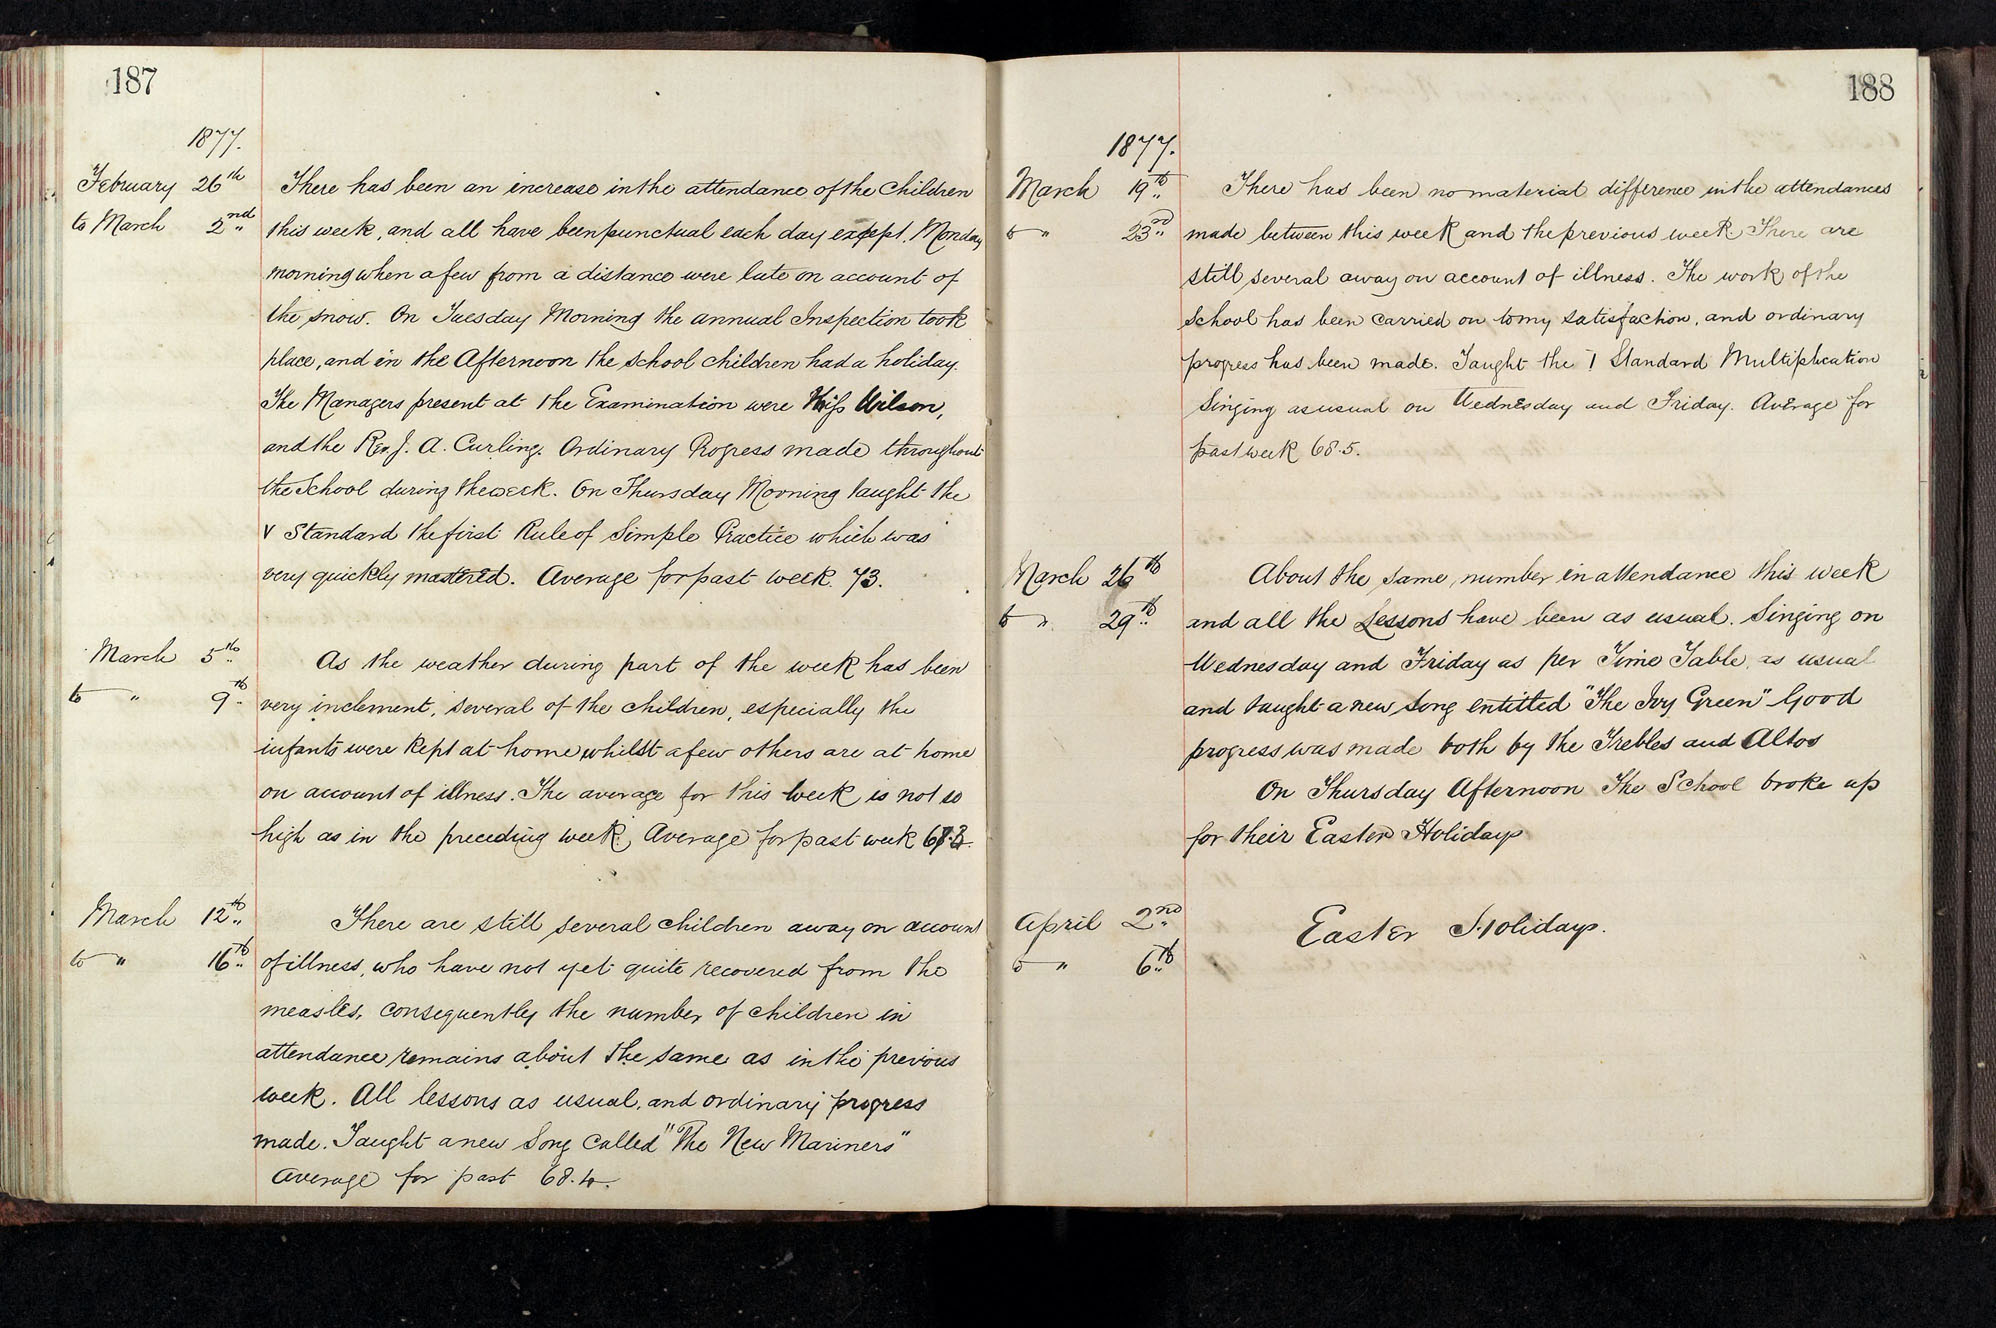 187
1877.
February 26th There has been an increase in the attendance of the Children
to March 2nd this week, and all have been punctual each day except Monday
morning when a few from a distance were late on account of
the snow. On Tuesday Morning the annual Inspection took
place, and in the Afternoon the School children had a holiday.
The Managers present at the Examination were Miss Wilson,
and the Rev. J. A. Curling. Ordinary Progress made throughout
the School during the week. On Thursday Morning taught the
V Standard the first Rule of Simple Practice which was
very quickly mastered. Average for past week 73.
March 5th As the weather during part of the week has been
to " 9th very inclement, several of the children, especially the
infants were kept at home, whilst a few others are at home
on account of illness. The average for this week is not so
high as in the preceding week. Average for past week
March 12th There are still several children away on account
to " 16th of illness, who have not yet quite recovered from the
measles, consequently the number of children in
attendance remains about the same as in the previous
week. All lessons as usual, and ordinary progress
made. Taught a new Song called "The New Mariners"
Average for past 68.4.
188
1877.
March 19th There has been no material difference in the attendances
to " 23rd made between this week and the previous week There are
still several away on account of illness. The work of the
School has been carried on to my satisfaction, and ordinary
progress has been made. Taught the I Standard Multiplication
Singing as usual on Wednesday and Friday. Average for
past week 68.5.
March 26th About the same number in attendance this week
to " 29th and all the Lessons have been as usual. Singing on
Wednesday and Friday as per Time Table as usual
and taught a new Song entitled "The Ivy Green" Good
progress was made both by the Trebles and Altos
On Thursday Afternoon The School broke up
for their Easter Holidays
April 2nd Easter Holidays.
to " 6th